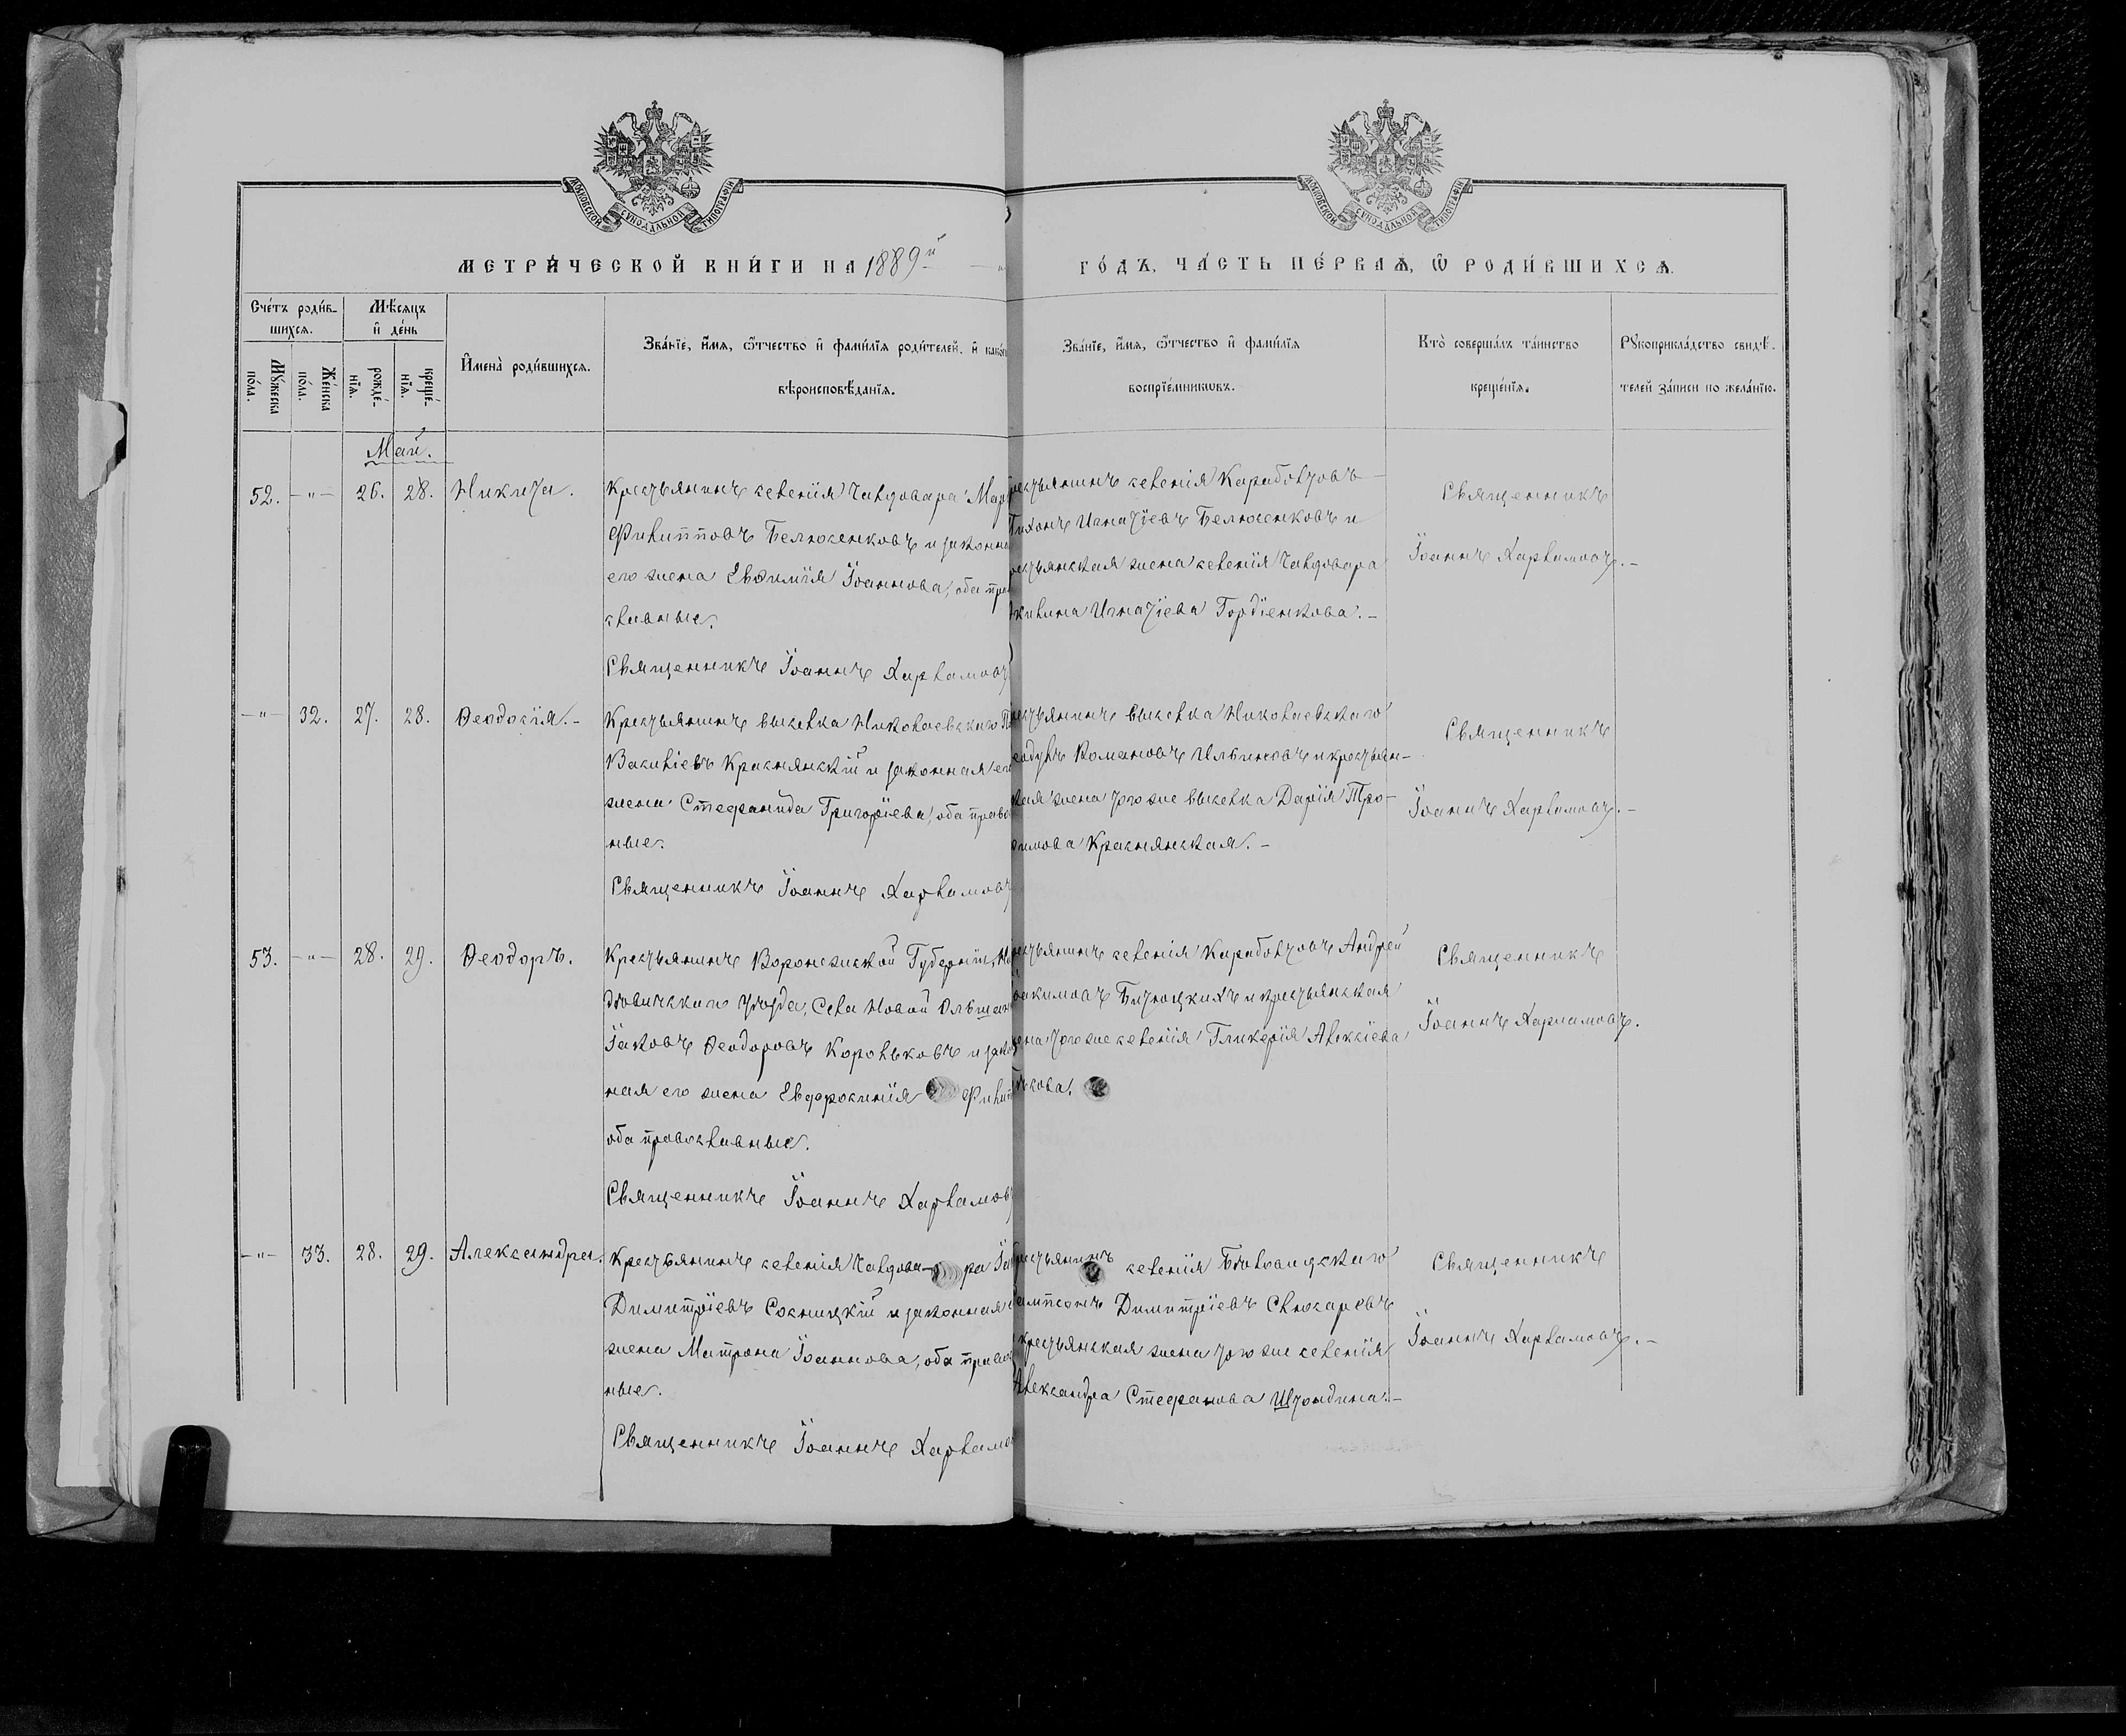 МОСКОВСКОЙ СѴНОДАЛЬНОЙ ТИПОГРАФІИ
МОСКОВСКОЙ СѴНОДАЛЬНОЙ ТИПОГРАФІИ
МЕТРИ́ЧЕСКОЙ КНИ́ГИ НА 1889й
ГО́ДЪ, ЧА́СТЬ ПЕ́РВАѦ, Ѡ РОДИ́ВШИХСѦ.
Сче́тъ роди́в-
шихсѧ.
Мꙋ́жеска
по́ла.
Же́нска
по́ла.
Мѣ́сяцъ
и҆ де́нь
рожде́-
нїѧ.
креще́-
нїѧ.
И҆мена̀ роди́вшихсѧ.
Зва́нїе, и҆́мѧ, ѻ҆́тчество и҆ фами́лїѧ роди́телей, и҆ како́
вѣроисповѣ́данїѧ.
Зва́нїе, и҆́мѧ, ѻ҆́тчество и҆ фами́лїѧ
воспрїе́мникѡвъ.
Кто̀ соверша́лъ та́инство
креще́нїѧ.
Рꙋкоприкла́дство свидѣ́-
телей за́писи по жела́нїю.
Май.
52. -"- 26. 28. Никита.
Крестьянинъ селенія Чалдовара
Филипповъ Белюсенковъ и законн
его жена Евѳимія Іоаннова, оба пра
славные.
Священникъ Іоаннъ Харламовъ
рестьянинъ селенія Караболтовъ
Тихонъ Игнатіевъ Белюсенковъ и
рестьянская жена селенія Чалдовара
Акилина Игнатіева Гордіенкова.-
Священникъ
Іоаннъ Харламовъ.-
-"- 32. 27. 28. Ѳеодосія.-
Крестьянинъ выселка Николаевскаго
Василіевъ Краснянскій и законная его
жена Стефанида Григоріева, оба право
ные.
Священникъ Іоаннъ Харламовъ
рестьянинъ выселка Николаевскаго
Романовъ Ильиновъ и крестьян-
ская жена того же выселка Дарія Тро-
фимова Краснянская.-
Священникъ
Іоаннъ Харламовъ.-
53. -"- 28. 29. Ѳеодоръ.
Крестьянинъ Воронежской Губерніи,
дѣвичьскаго Уѣзда, Села Новой Ольшан
Іаковъ Ѳеодоровъ Корольковъ и зако
ная его жена Евфросинія Филип
оба православные.
Священникъ Іоаннъ Харламовъ
рестьянинъ селенія Караболтовъ Андрей
Битюцкихъ и крестьянская
жена того же селенія Гликерія Алексіева
Священникъ
Іоаннъ Харламовъ.
-"- 33. 28. 29. Александра.
Крестьянинъ селенія Чалдова-ра
Димитріевъ Сосницкій и законная
жена Матрона Іоаннова, оба правос
ные.
Священникъ Іоаннъ Харламов
рестьянинъ селенія Бѣловодскаго
Сампсонъ Димитріевъ Слюсаревъ
крестьянская жена того же селенія
Александра Стефанова Штондина.-
Священникъ
Іоаннъ Харламовъ.-